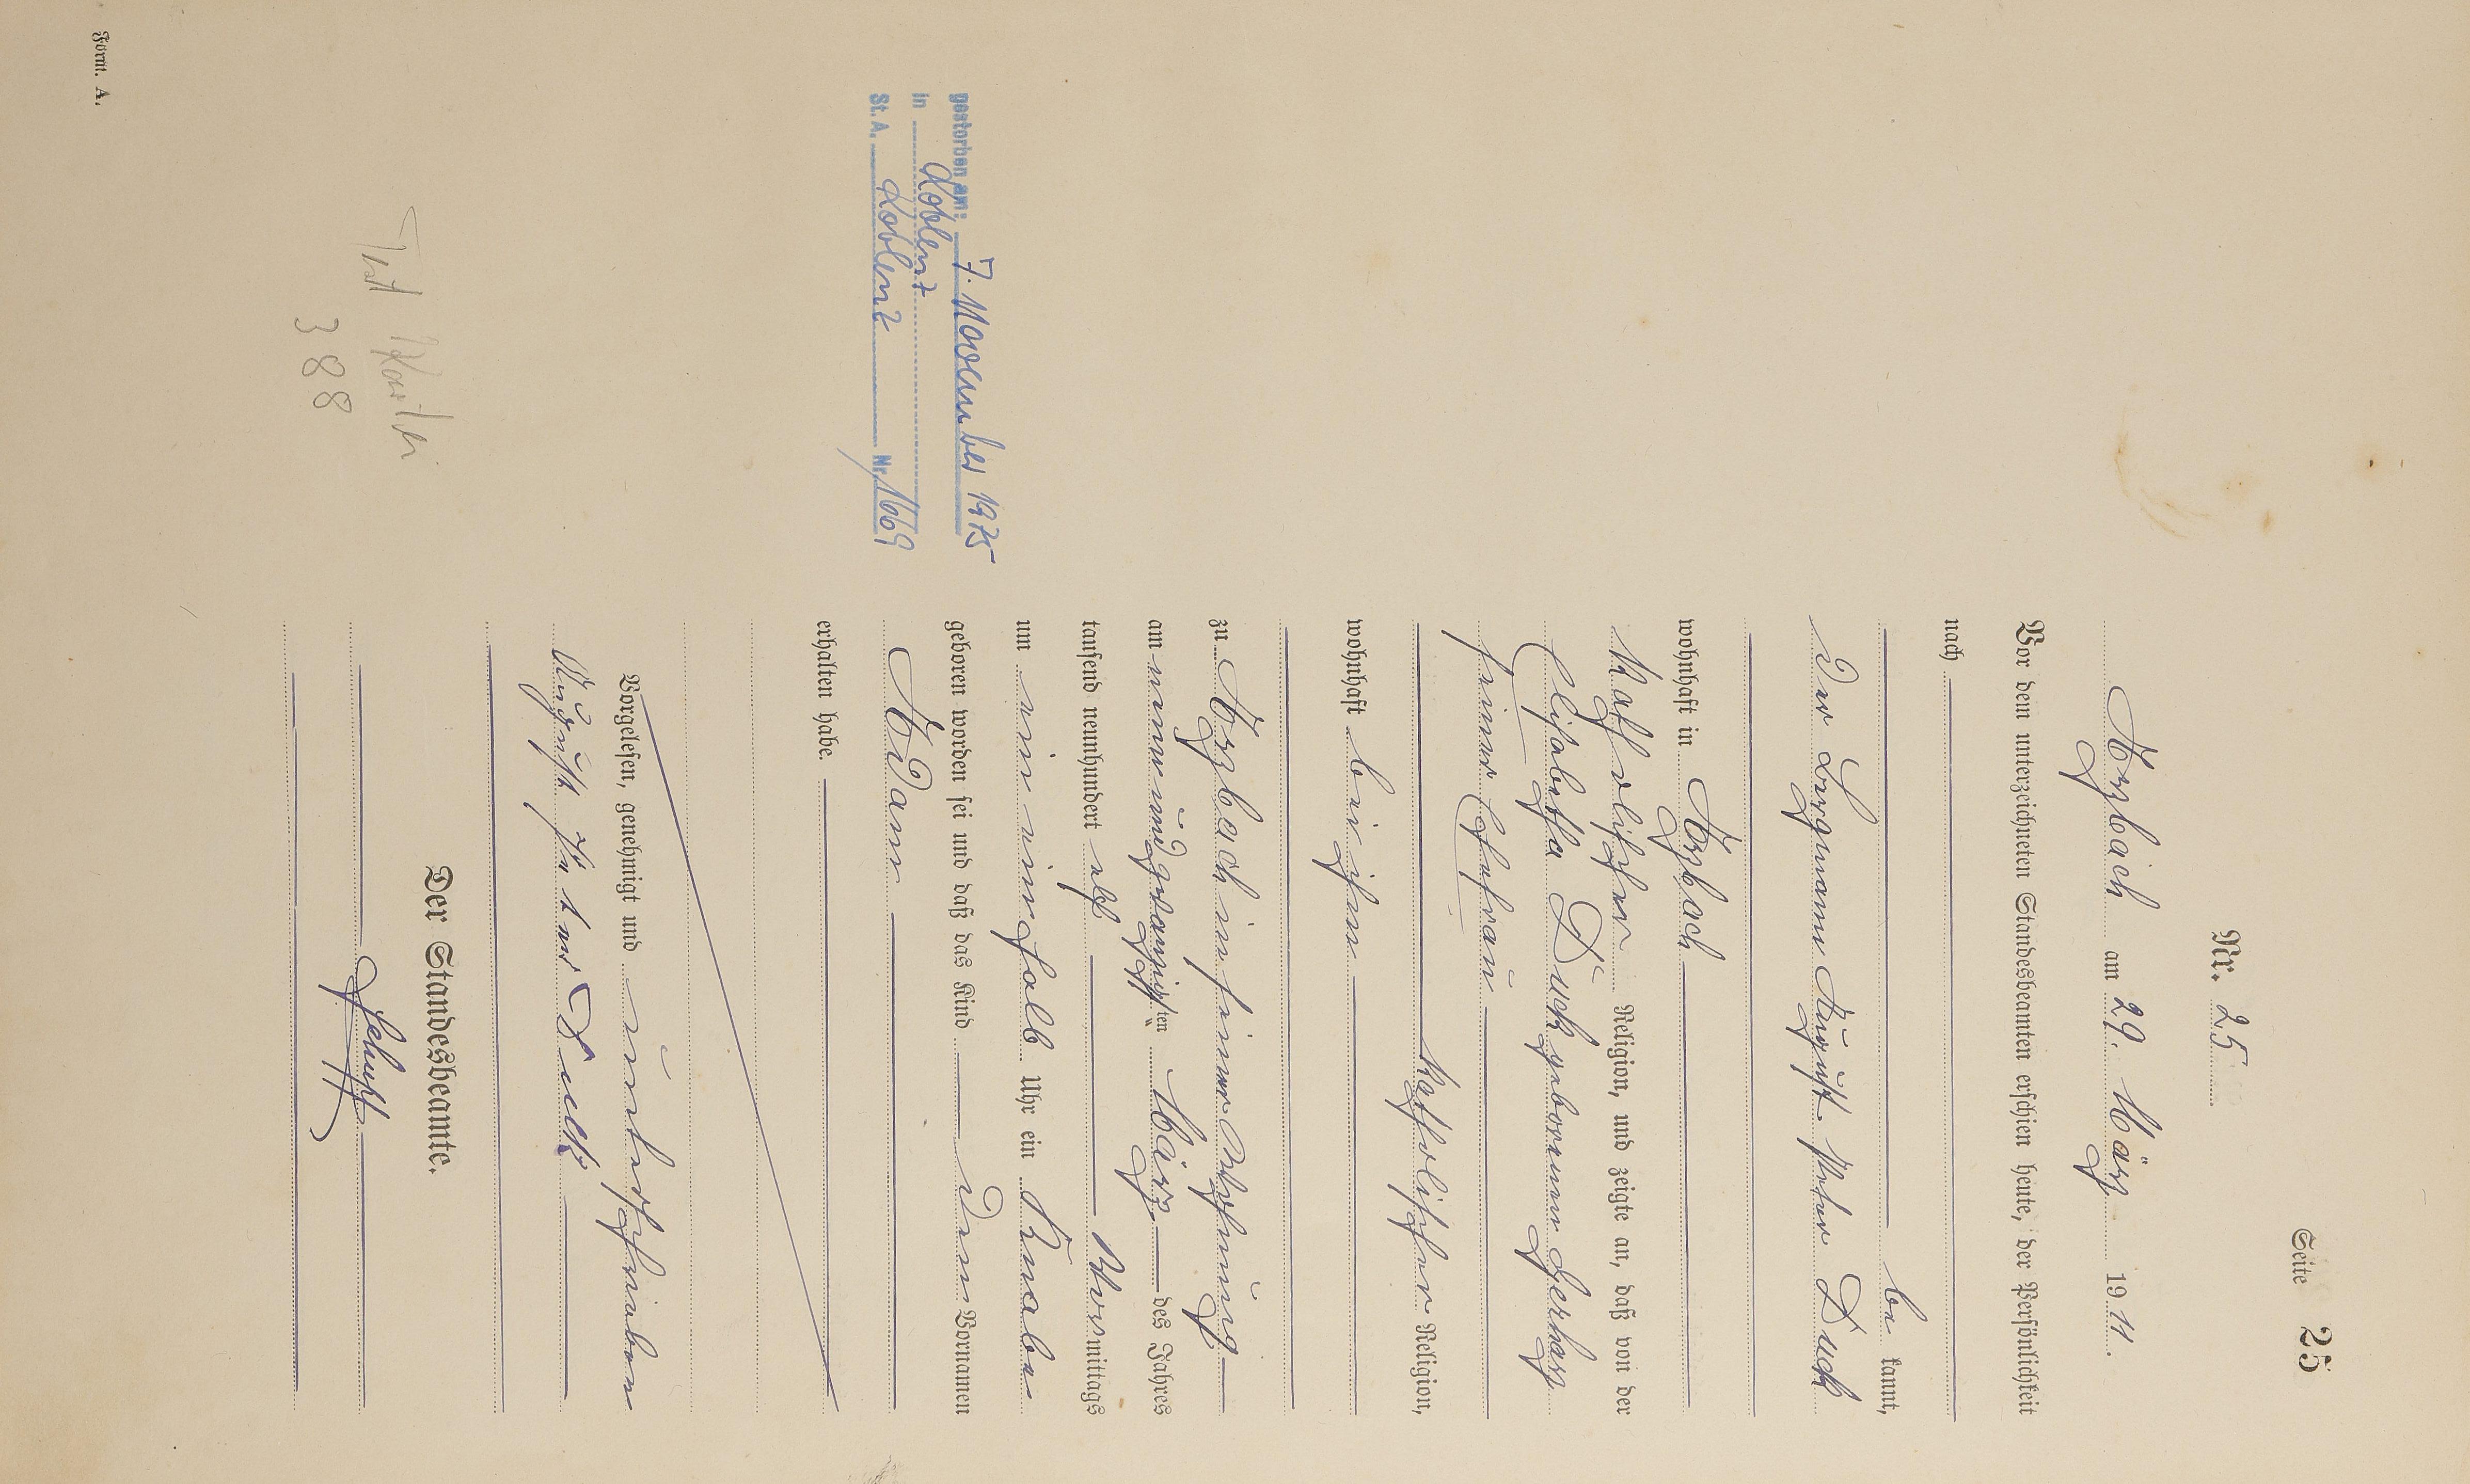 Form. A.
Seite 25
Nr. 25
Arzbach am 29. März 1911.
Vor dem unterzeichneten Standesbeamten erschien heute, der Persönlichkeit
nach
be kannt,
Der Bergmann August Peter Dück
wohnhaft in Arzbach
Katholischer Religion, und zeigte an, daß von der
Elisabetha Dück geborenen Gerharz
seiner Ehefrau
Katholischer Religion,
wohnhaft bei ihm
zu Arzbach in seiner Wohnung
am neunundzwanzigsten März des Jahres
tausend neunhundert elf Vormittags
um ein einhalb Uhr ein Knabe
geboren worden sei und daß das Kind den Vornamen
Adam
erhalten habe.
Vorgelesen, genehmigt und unterschrieben
August Peter Dück
Der Standesbeamte.
gestorben am: 7. November 1975
in Koblenz
St. A. Koblenz Nr. 1669
388